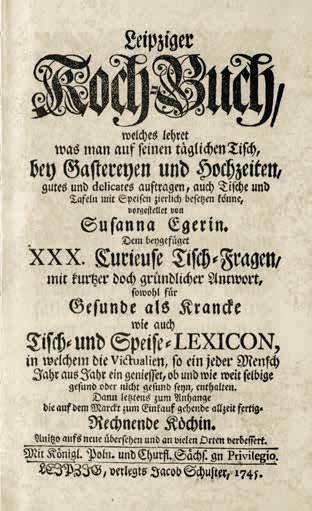 Leipziger
Koch-Buch,
welches lehret
was man auf seinen täglichen Tisch,
bey Gastereyen und Hochzeiten,
gutes und delicates auftragen, auch Tische und
Tafeln mit Speisen zierlich besetzen könne,
vorgestellet von
Susanna Egerin.
Dem beygefüget
XXX. Curieuse Tisch-Fragen,
mit kurtzer doch gründlicher Antwort,
sowohl für
Gesunde als Krancke
wie auch
Tisch- und Speise-LEXICON,
in welchem die Victualien, so ein jeder Mensch
Jahr aus Jahr ein geniesset, ob und wie weit selbige
gesund oder nicht gesund seyn, enthalten.
Dann letztens zum Anhange
die auf dem Marckt zum Einkauf gehende allzeit fertig-
Rechnende Köchin.
Anitzo aufs neue übersehen und an vielen Orten verbessert.
Mit Königl. Poln. und Churfl. Sächs. gn Privilegio.
LEIPZIG, verlegts Jacob Schuster, 1745.